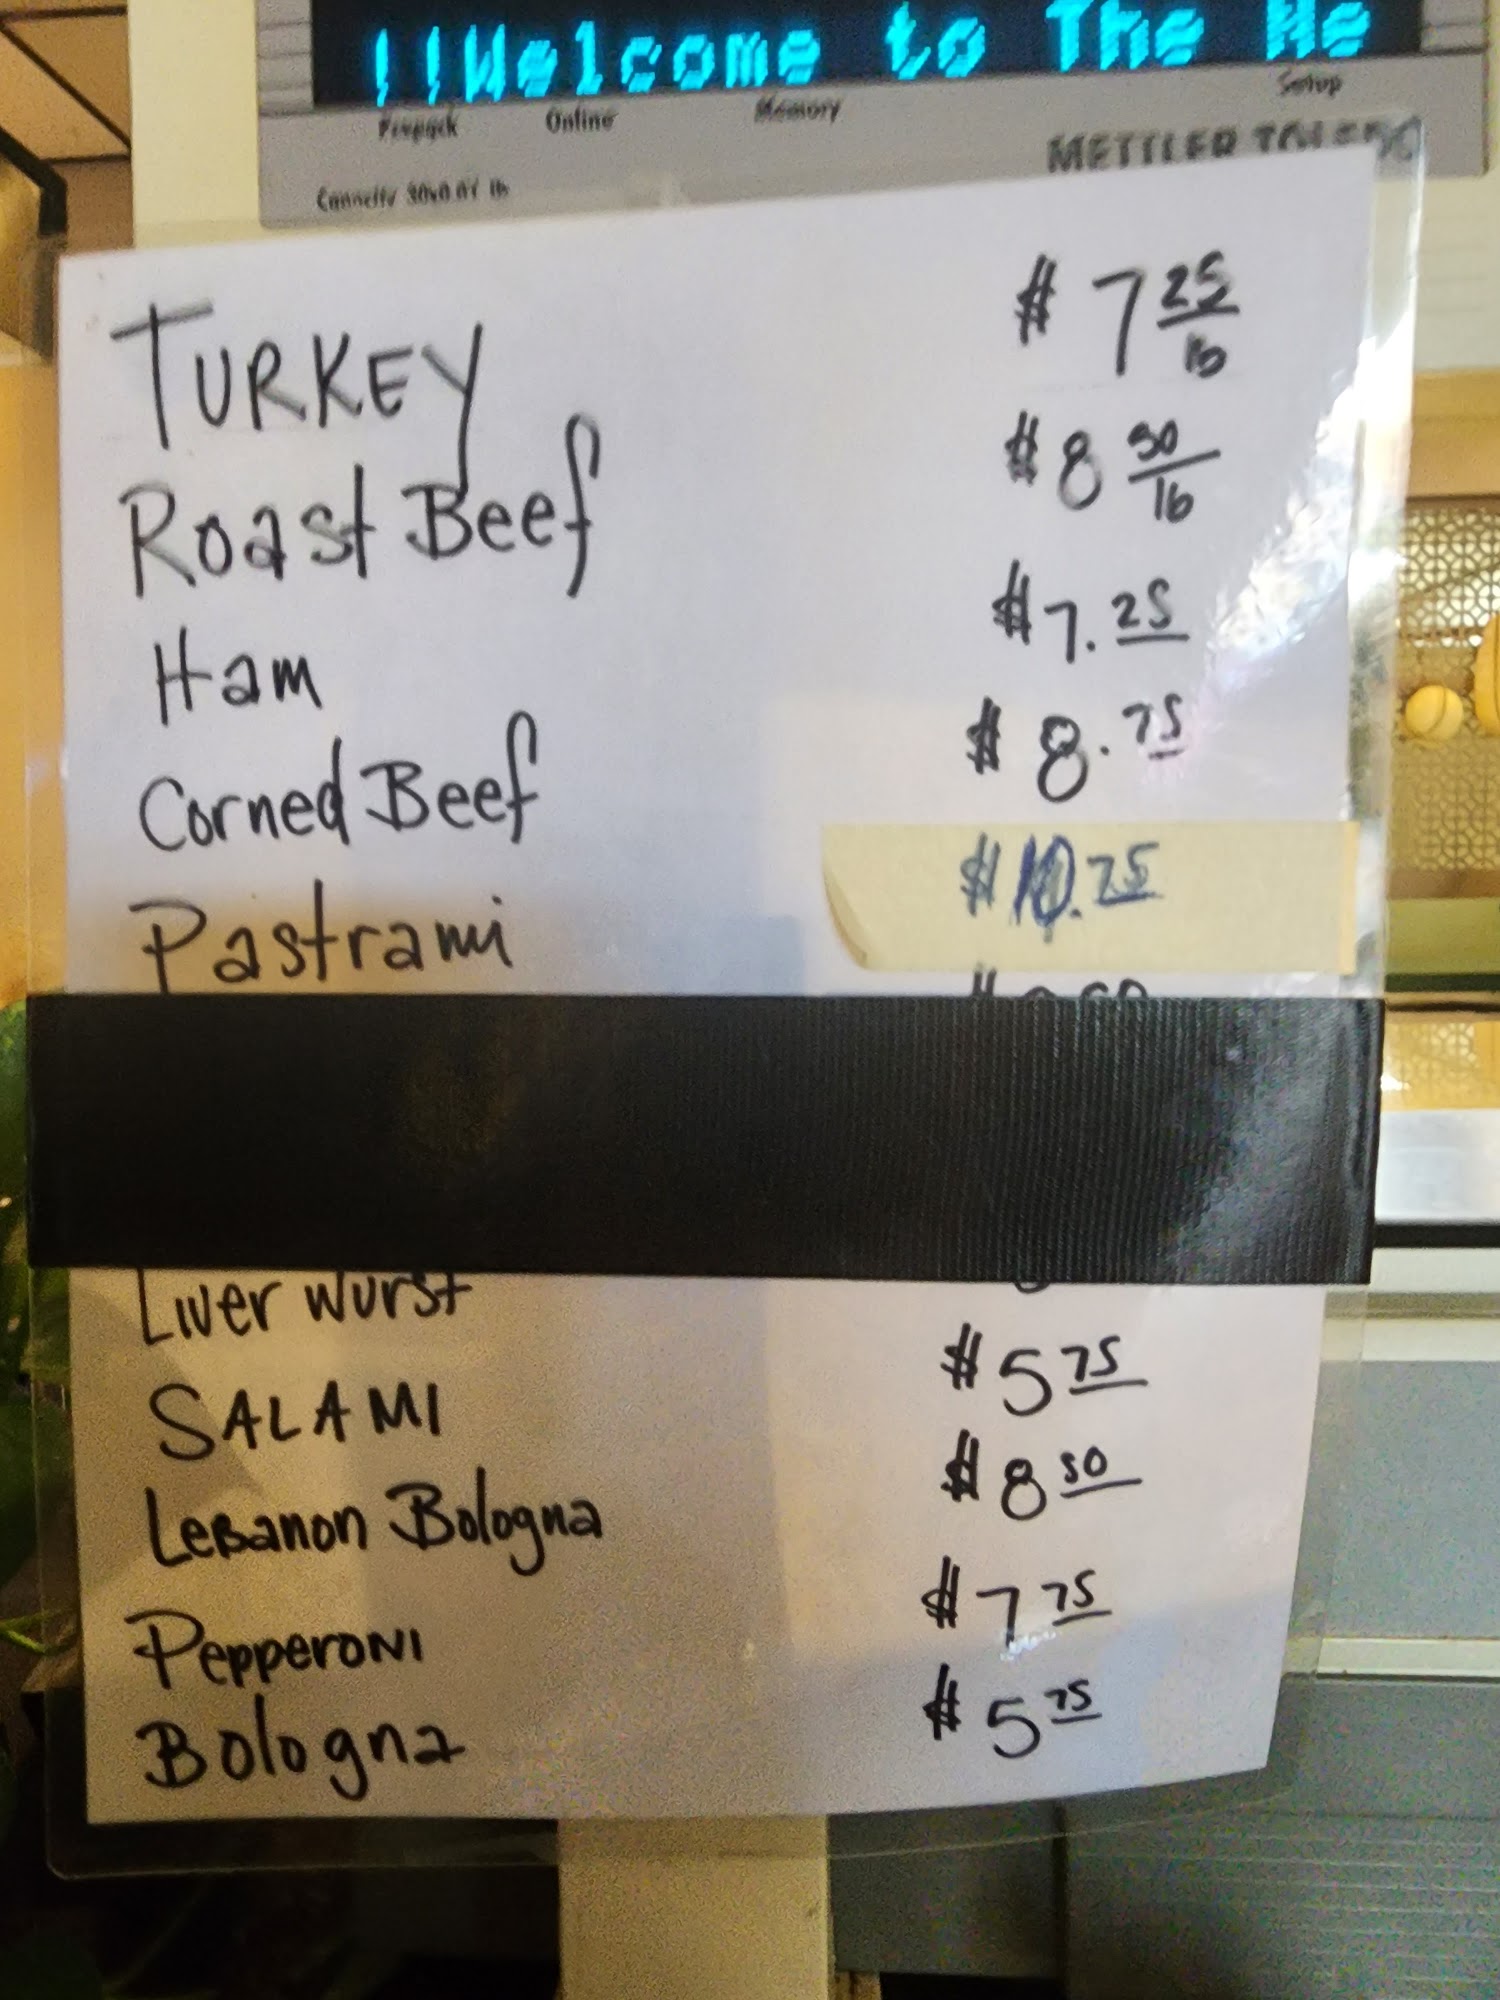 !!Welcome to The He
Prepack Online Memory Setup
METTLER TOLEDO
Capacity 30x0.01 lb
TURKEY $7 25/lb
Roast Beef $8 50/lb
Ham $7.25
Corned Beef $8.75
Pastrami $10.75
Liverwurst
SALAMI $5 75
Lebanon Bologna $8 50
Pepperoni $7 75
Bologna $5 75